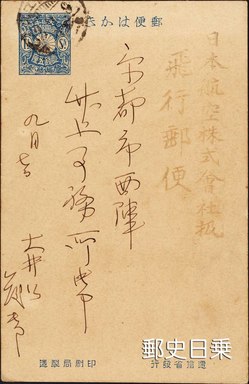 郵便はかき
日本航空株式會社扱
飛行郵便
京都市西陣
井上事務所
九月
大井
遞信省發行
印刷局製造
郵史日乗